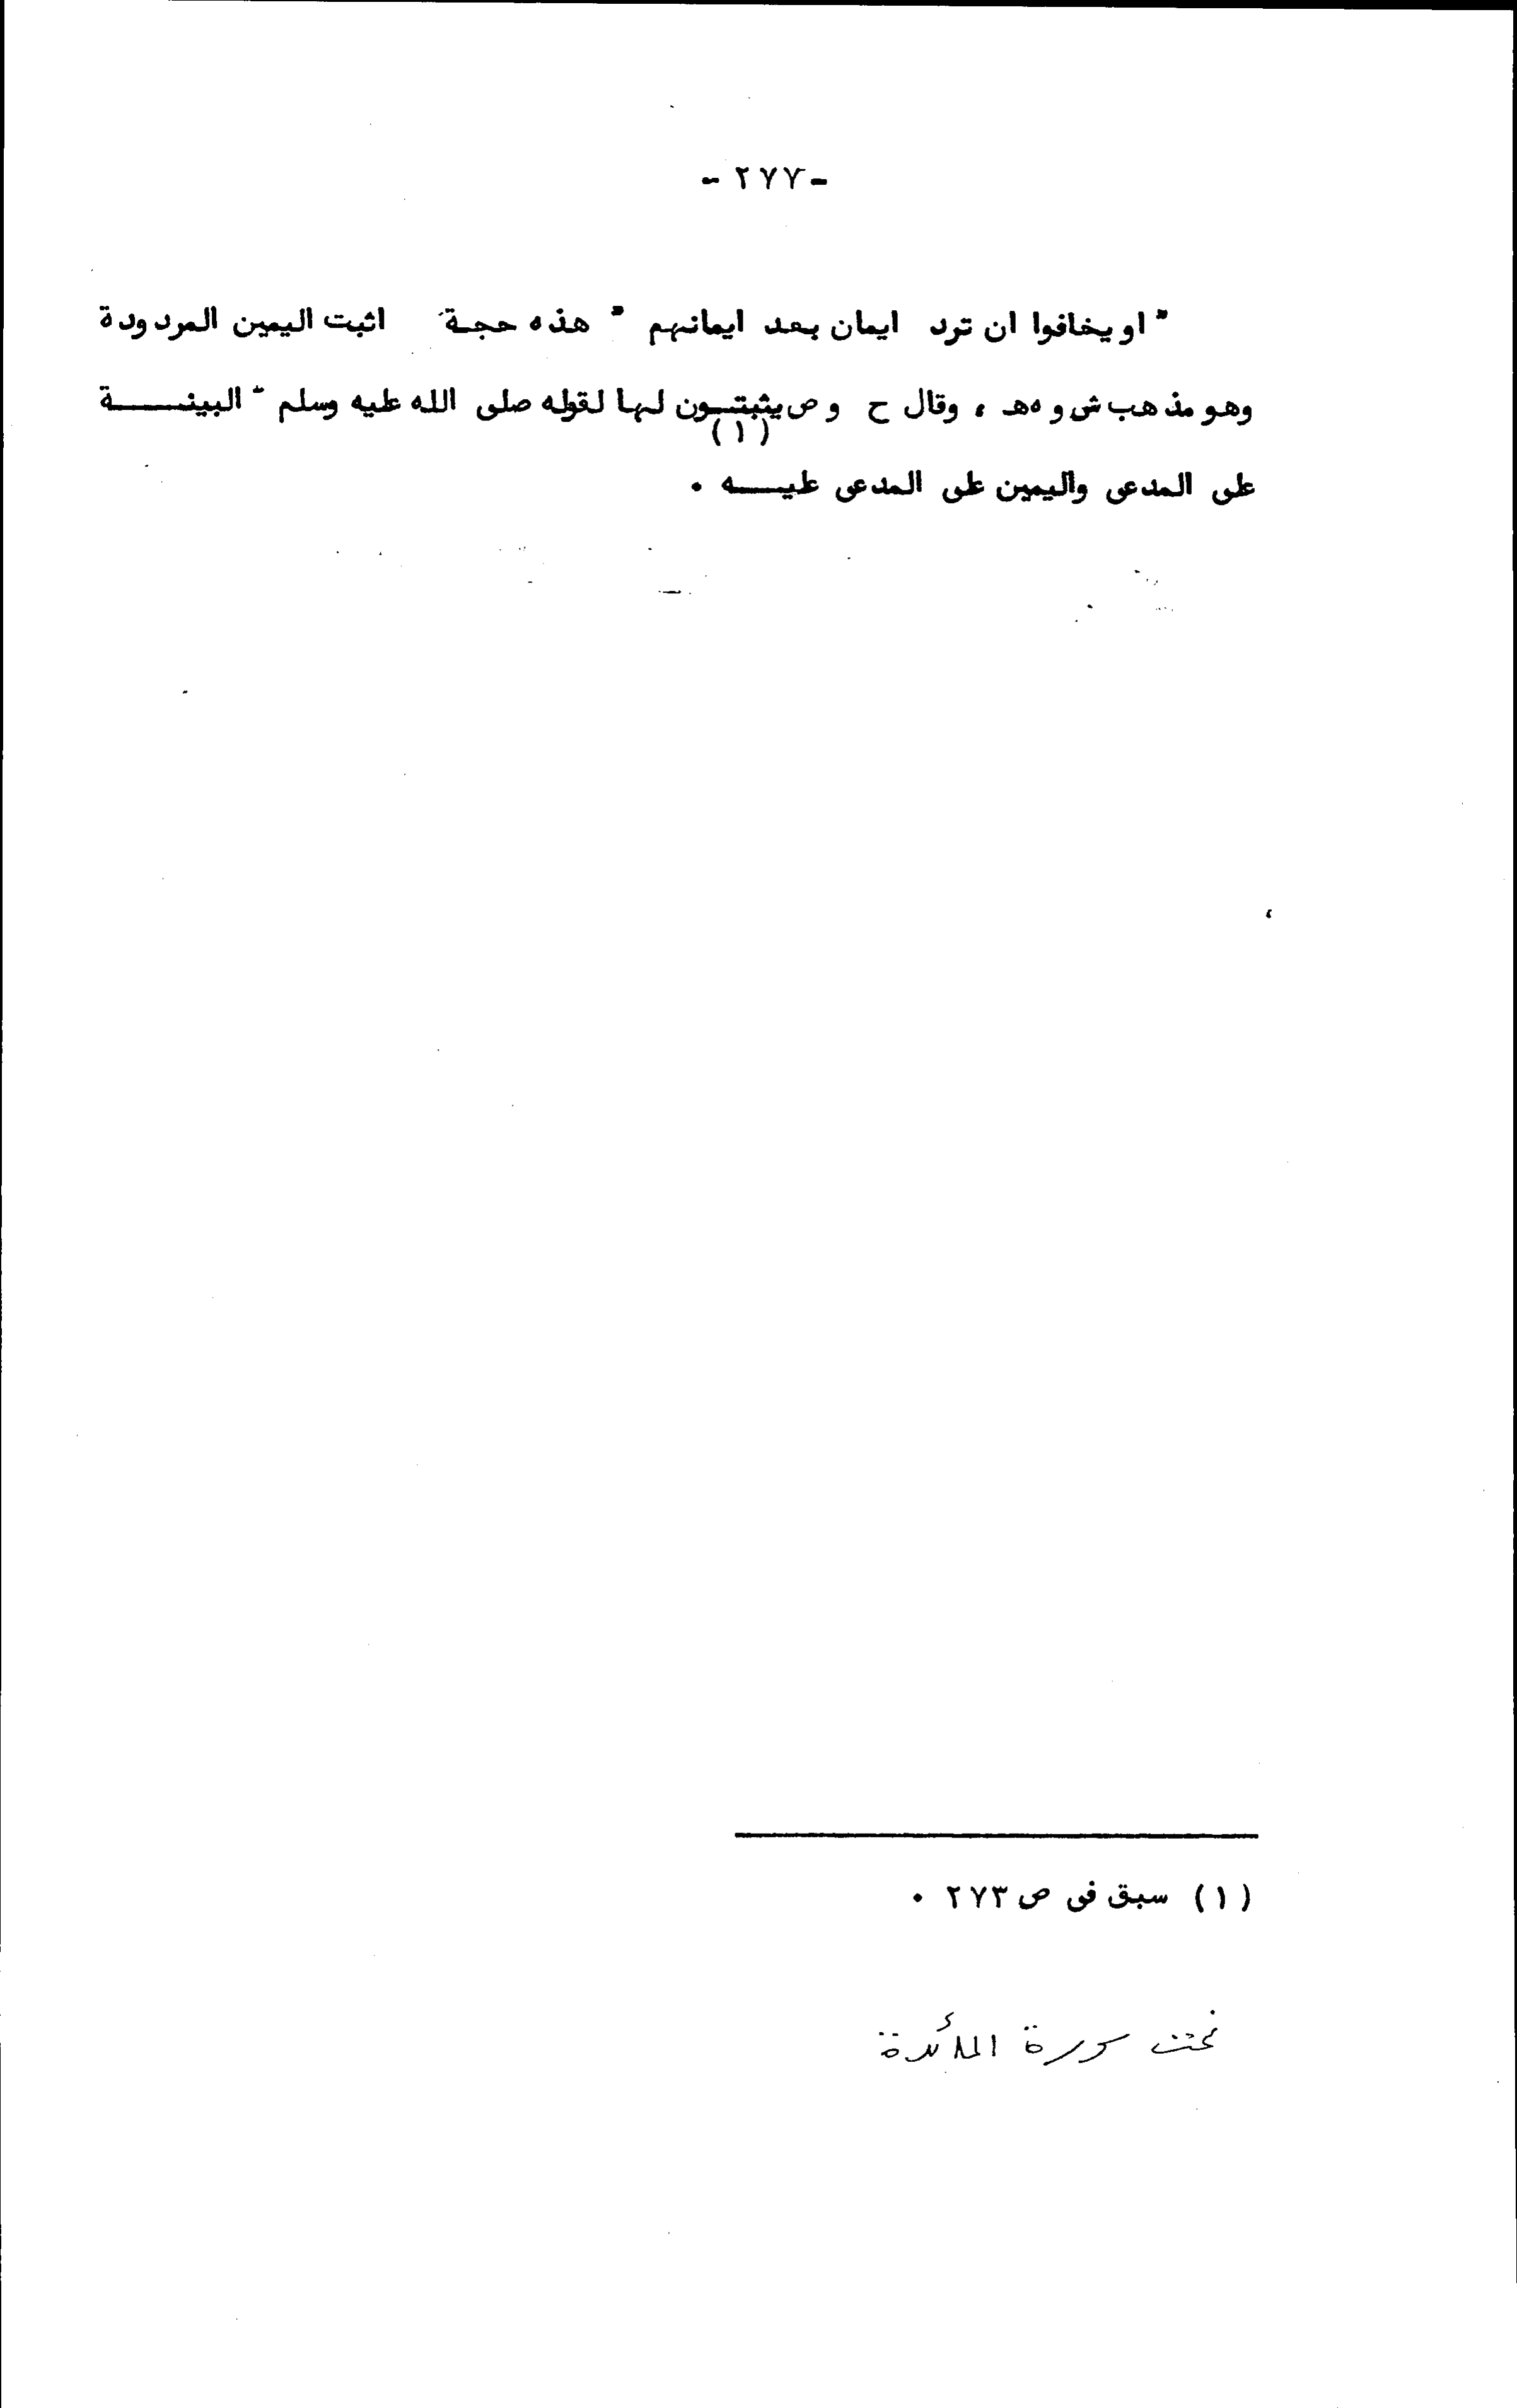 - ٢٧٧ -
" او يخافوا ان ترد ايمان بعد ايمانهم " هذه حجة اثبت اليمين المردودة
وهو مذهب ش و هـ ، وقال ح و ص يثبتـون لها لقوله صلى الله عليه وسلم " البينــــة
على المدعى واليمين على المدعى عليـــه (١) .
(١) سبق فى ص ٢٧٣ .
تمت سورة المائدة